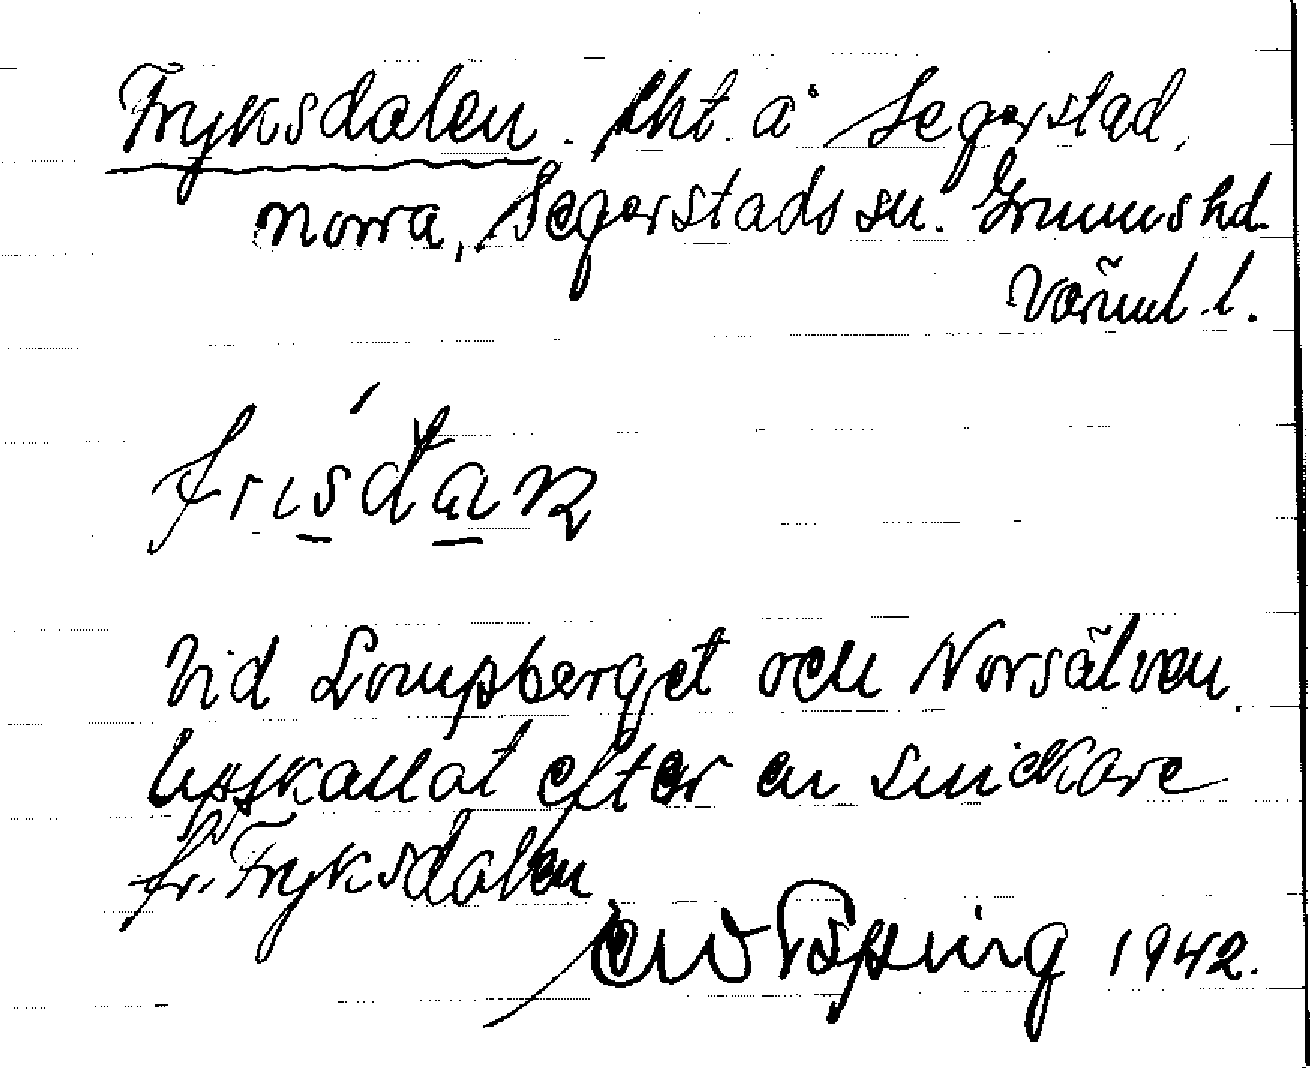 Fryksdalen. lht. å Segerstad,
norra, Segerstads sn. Grums hd.
Värml. l.
Vid Lompberget och Norsälven.
Uppkallat efter en snickare
fr. Fryksdalen
1942.